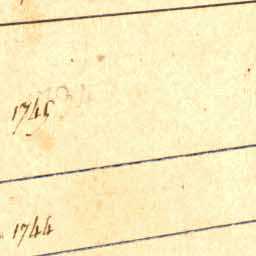 1745
1744